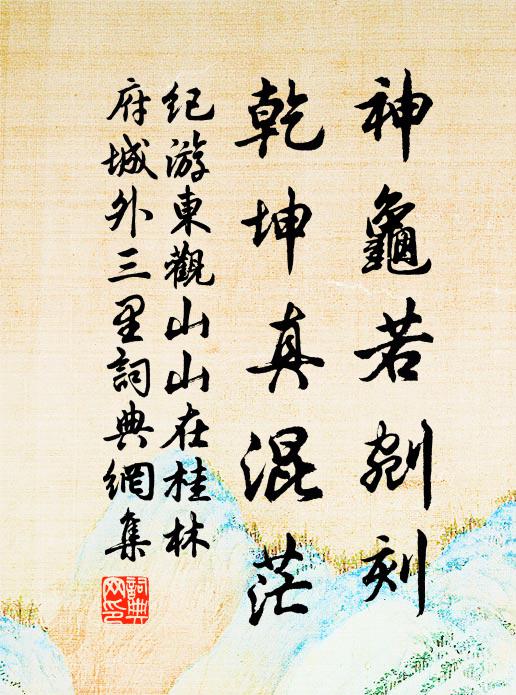 神龜若剜刻
乾坤真混茫
纪游東觀山山在桂林
府城外三里詞典網集
詞典網印